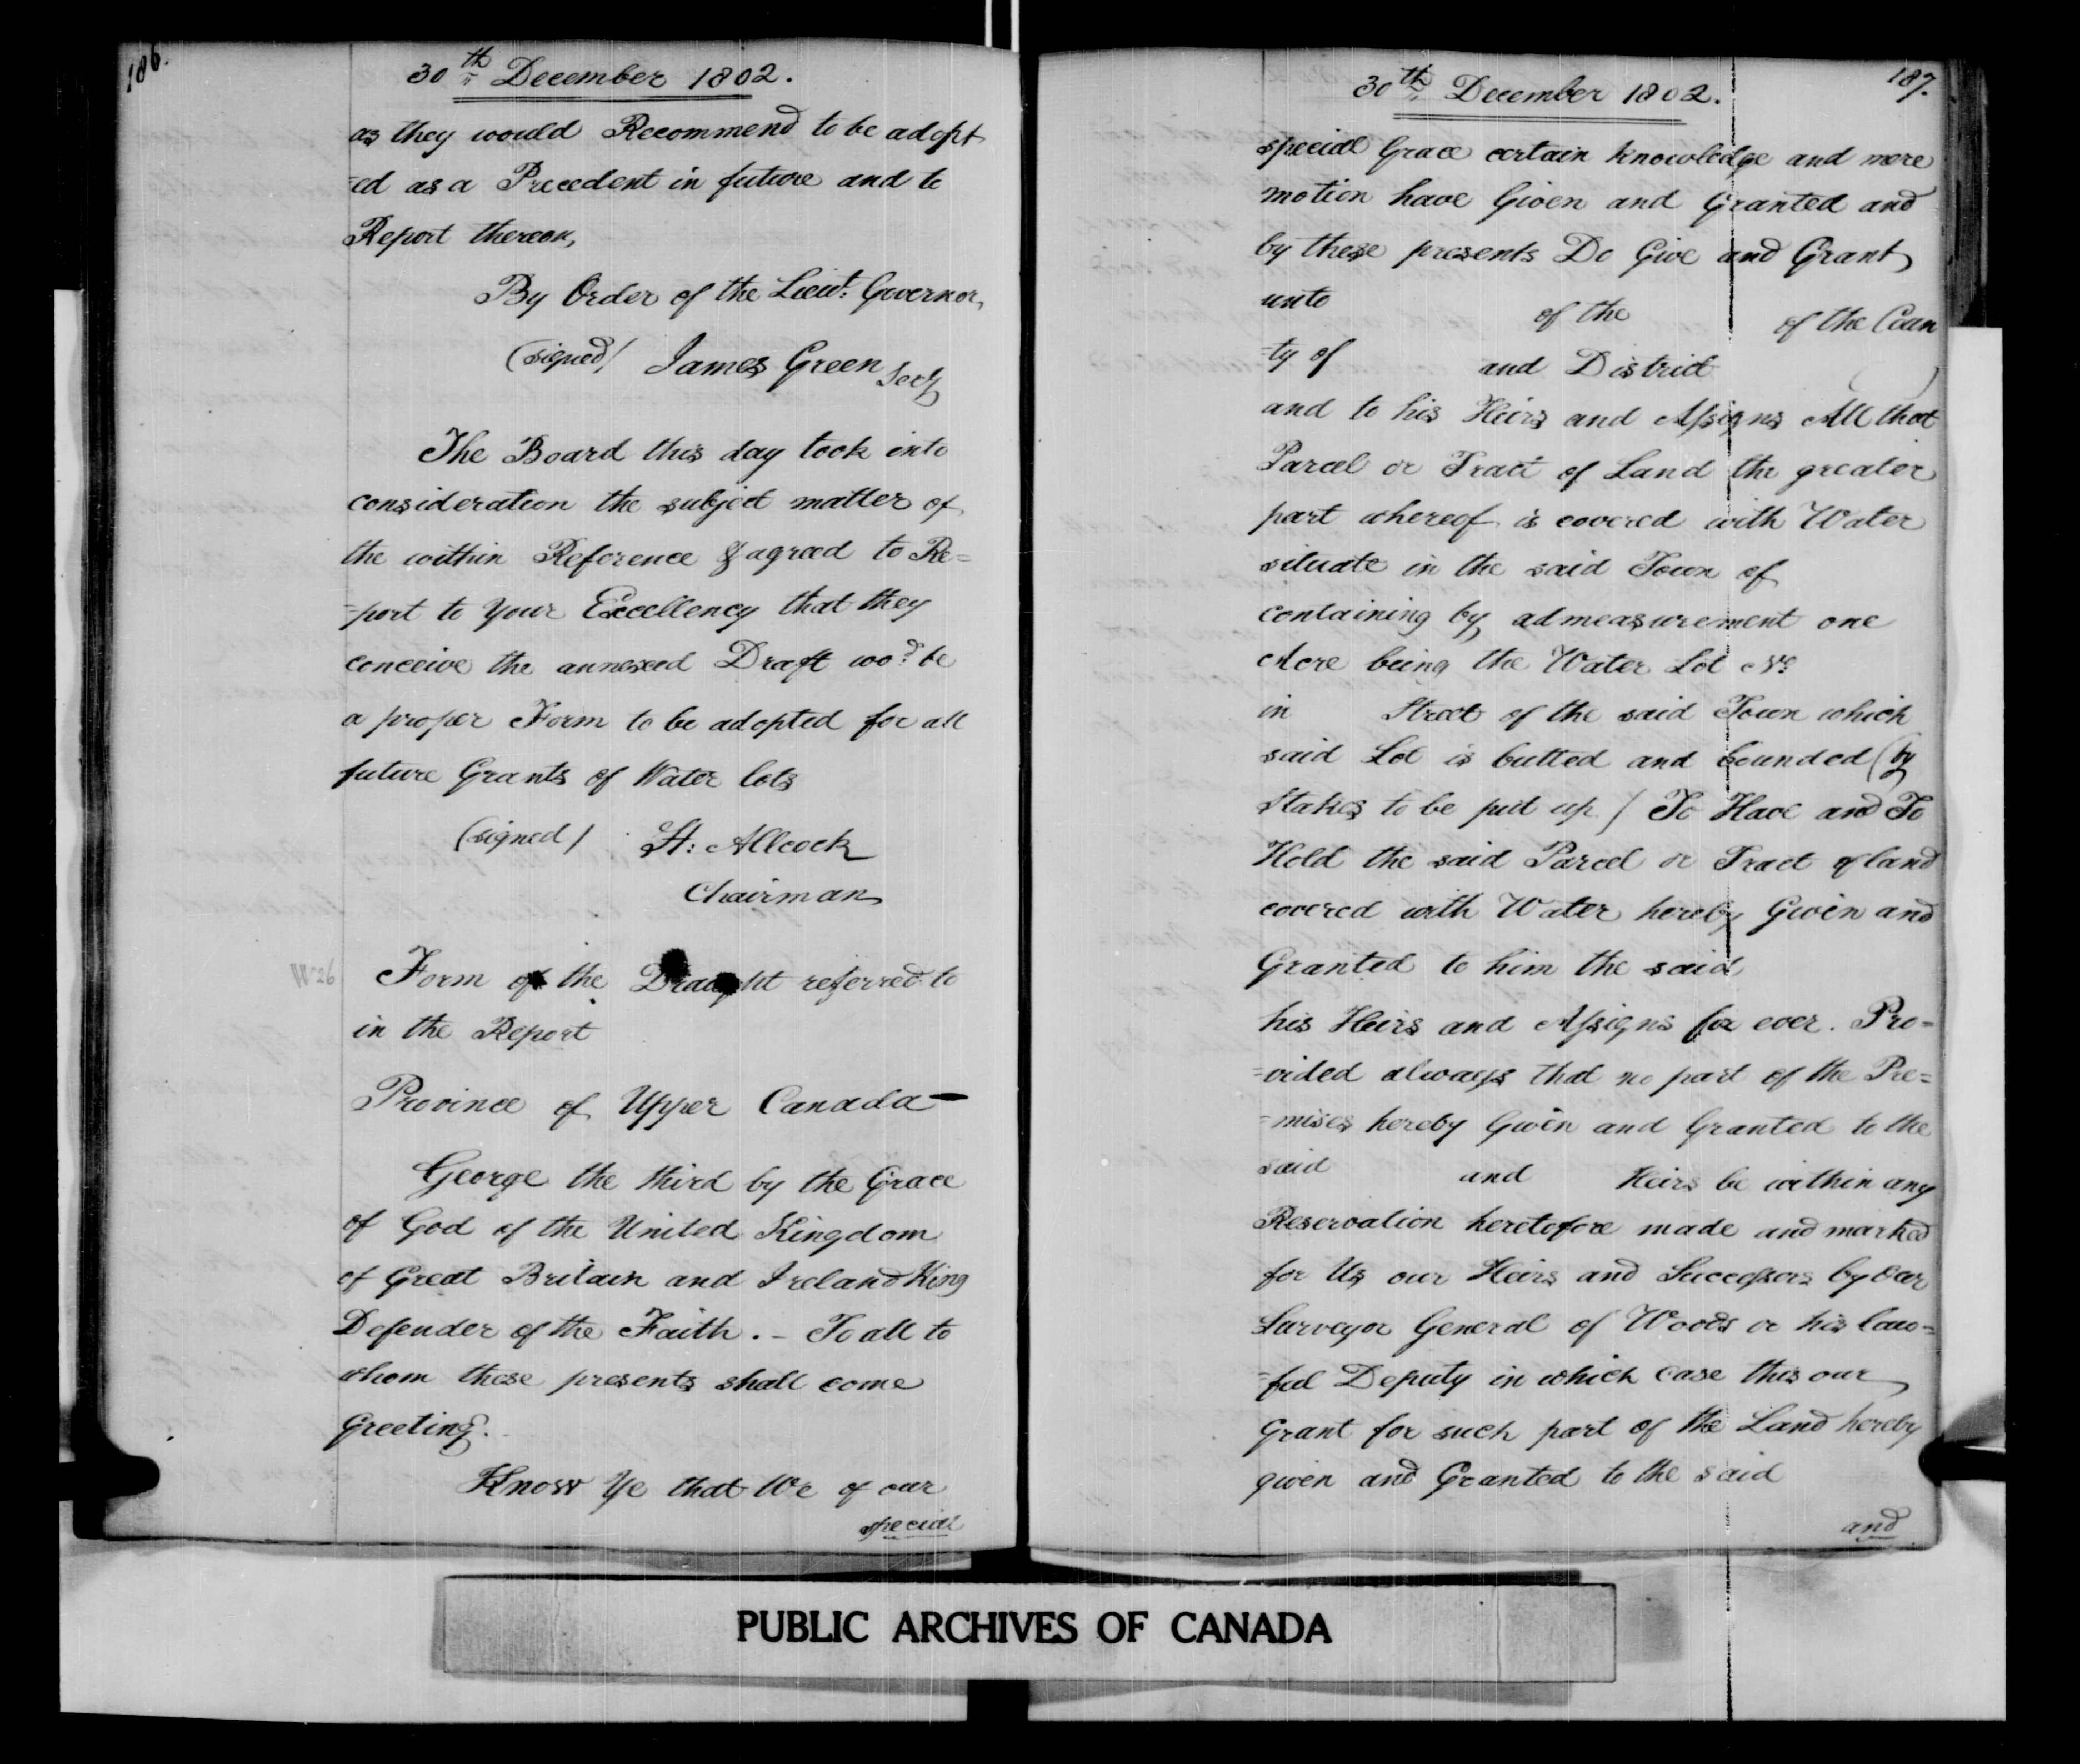 186.
30th December 1802.
as they would Recommend to be adopt
=ed as a Precedent in future and to
Report thereon,
By Order of the Lieut. Governor,
(signed) James Green Secy
The Board this day took into
consideration the subject matter of
the within Reference & agreed to Re=
=port to Your Excellency that they
conceive the annexed Draft wo.d be
a proper Form to be adopted for all
future Grants of Water lots
(signed) H: Allcock
Chairman
W26
Form of the Draught referred to
in the Report
Province of Upper Canada —
George the third by the Grace
of God of the United Kingdom
of Great Britain and Ireland King
Defender of the Faith. – To all to
whom these presents shall come
Greeting.
Know Ye that We of our
special
187.
30th December 1802.
special Grace certain knowledge and mere
motion have Given and Granted and
by these presents Do Give and Grant
unto of the of the Coun
=ty of and District
and to his Heirs and Assigns All that
Parcel or Tract of Land the greater
part whereof is covered with Water
situate in the said Town of
containing by admeasurement one
Acre being the Water Lot No
in Street of the said Town which
said Lot is butted and bounded (by
Stakes to be put up) To Have and To
Hold the said Parcel or Tract of land
covered with Water hereby Given and
Granted to him the said
his Heirs and Assigns for ever. Pro=
=vided always that no part of the Pre=
=mises hereby Given and Granted to the
said and Heirs be within any
Reservation heretofore made and marked
for Us our Heirs and Successors by Our
Surveyor General of Woods or his law=
=ful Deputy in which case this our
Grant for such part of the Land hereby
given and Granted to the said
and
PUBLIC ARCHIVES OF CANADA